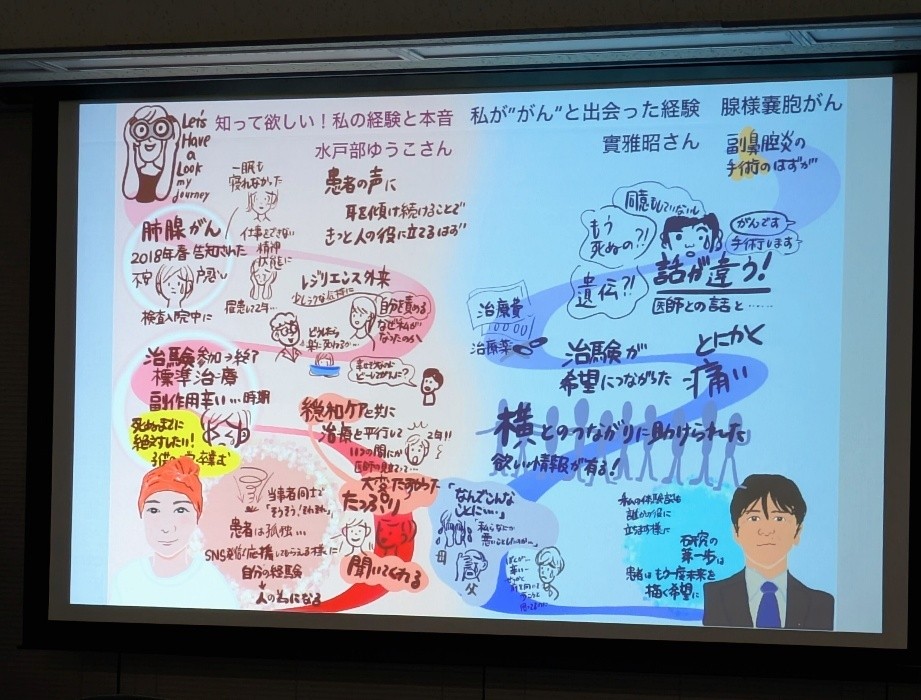 Let's
Have
a
Look
my
journey
知って欲しい！私の経験と本音
水戸部ゆうこさん
一睡も
寝れなかった
患者の声に
耳を傾け続けることで
きっと人の役に立てるはず
肺腺がん
2018年春 告知された
検査入院中に
仕事もできない
精神
状態に
罹患して2年…
レジリエンス外来
自分を責める
なぜ私が
なったのか
治験参加→終了
標準治療
副作用辛い…時期
死ぬまでに
絶対したい！
緩和ケアと共に
治療と平行して
2年!!
いつの間にか
大変だったね
たっぷり
聞いてくれる
当事者同士で
患者は孤独…
自分の経験
人の為になる
私が“がん”と出会った経験 腺様嚢胞がん
實雅昭さん
副鼻腔炎の
手術のはずが
同意もしていない
もう
死ぬの?!
がんです
手術します
遺伝?!
話が違う！
医師との話と……
治療費
治療薬
治験が
希望につながった
とにかく
痛い
横とのつながりに助けられた
欲しい情報が有る！
「なんでこんな
ことに…」
母
父
私の体験談は
誰かの役に
立ちます様に
研究の
第一歩は
患者はもう一度未来を
描く希望に